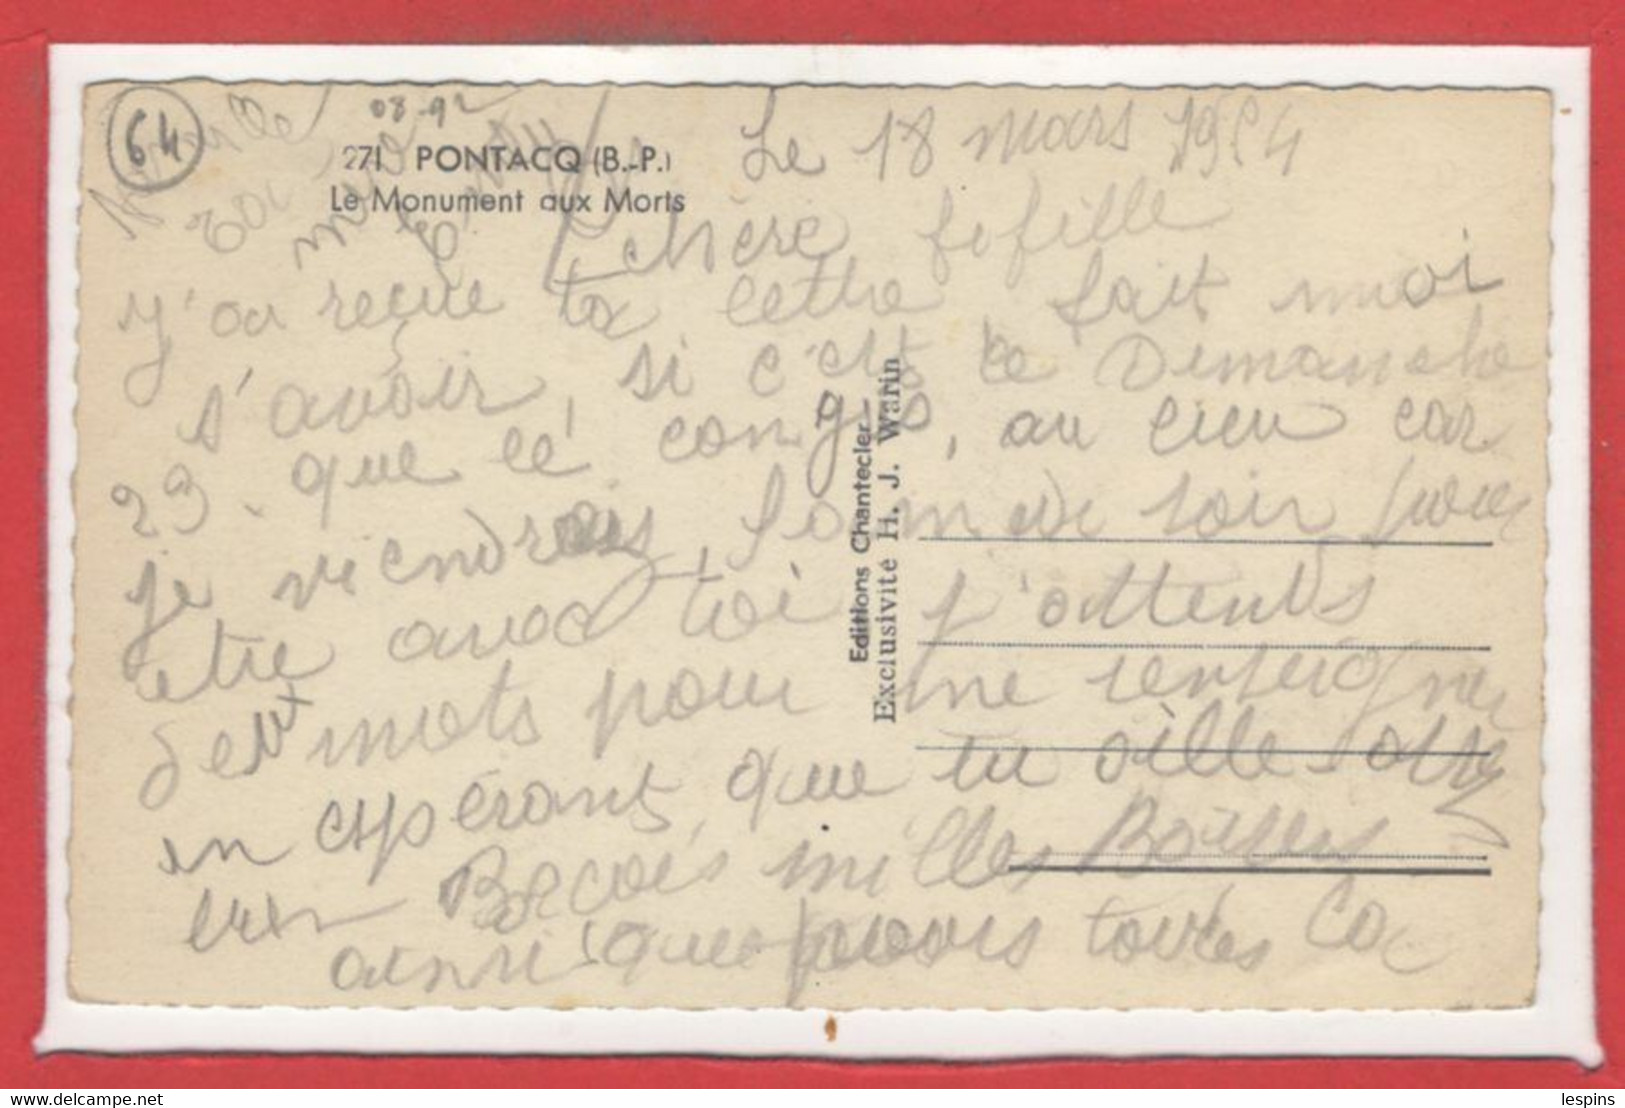 64
08-92
271 PONTACQ (B.-P.)
Le Monument aux Morts
Le 18 mars 1954
chère fifille
j'ai reçue ta lettre fait moi
s'avoir, si c'est le Dimanche
29. que lé congrs, au lieu car
je viendrais soir pour
etre avec toi j'attends
deux mots pour me renseigner
en espérant que tu aille
bien Recois milles Baisers
ainsi que pour toutes
Editions Chantecler
Exclusivité H. J. Warin
lespins